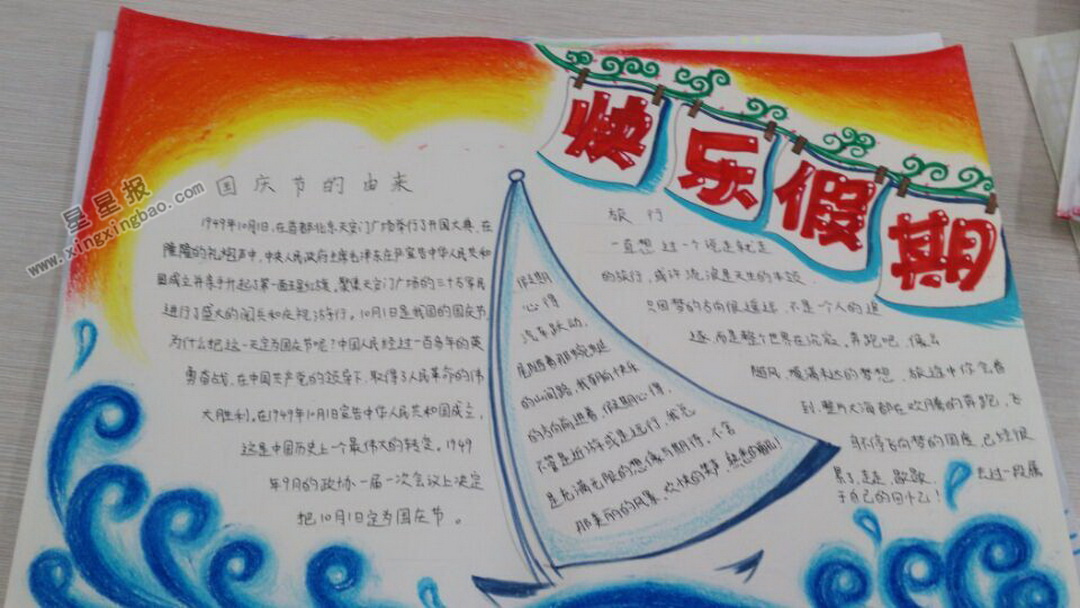 快乐假期
星星报
www.xingxingbao.com
国庆节的由来
1949年10月1日,在首都北京天安门广场举行了开国大典,在
隆隆的礼炮声中,中央人民政府主席毛泽东庄严宣告中华人民共和
国成立并亲手升起了第一面五星红旗。聚集天安门广场的三十万军民
进行了盛大的阅兵和庆祝游行。10月1日是我国的国庆节
为什么把这一天定为国庆节呢?中国人民经过一百多年的英
勇奋战,在中国共产党的领导下,取得了人民革命的伟
大胜利,在1949年10月1日宣告中华人民共和国成立,
这是中国历史上一个最伟大的转变。1949
年9月的政协一届一次会议上决定
把10月1日定为国庆节。
假期
心得
汽车跃动,
尾随着那蜿蜒
的山间路,我朝向快乐
的方向前进着,假期心得,
不管是近游或是远行,我充
是充满无限的想像与期待,不舍
那美丽的风景,欢快的笑声,熟悉的
旅行
一直想过一个说走就走
的旅行,或许流浪是天生的本领
只因梦的方向很遥远,不是一个人的追
逐,而是整个世界在沉寂,奔跑吧,像云
随风,填满未达的梦想,旅途中你会看
到,整片大海都在欢腾的奔跑,永
不停飞向梦的国度,已经很
累了,走走,歇歇,去过一段属
于自己的日子吧!